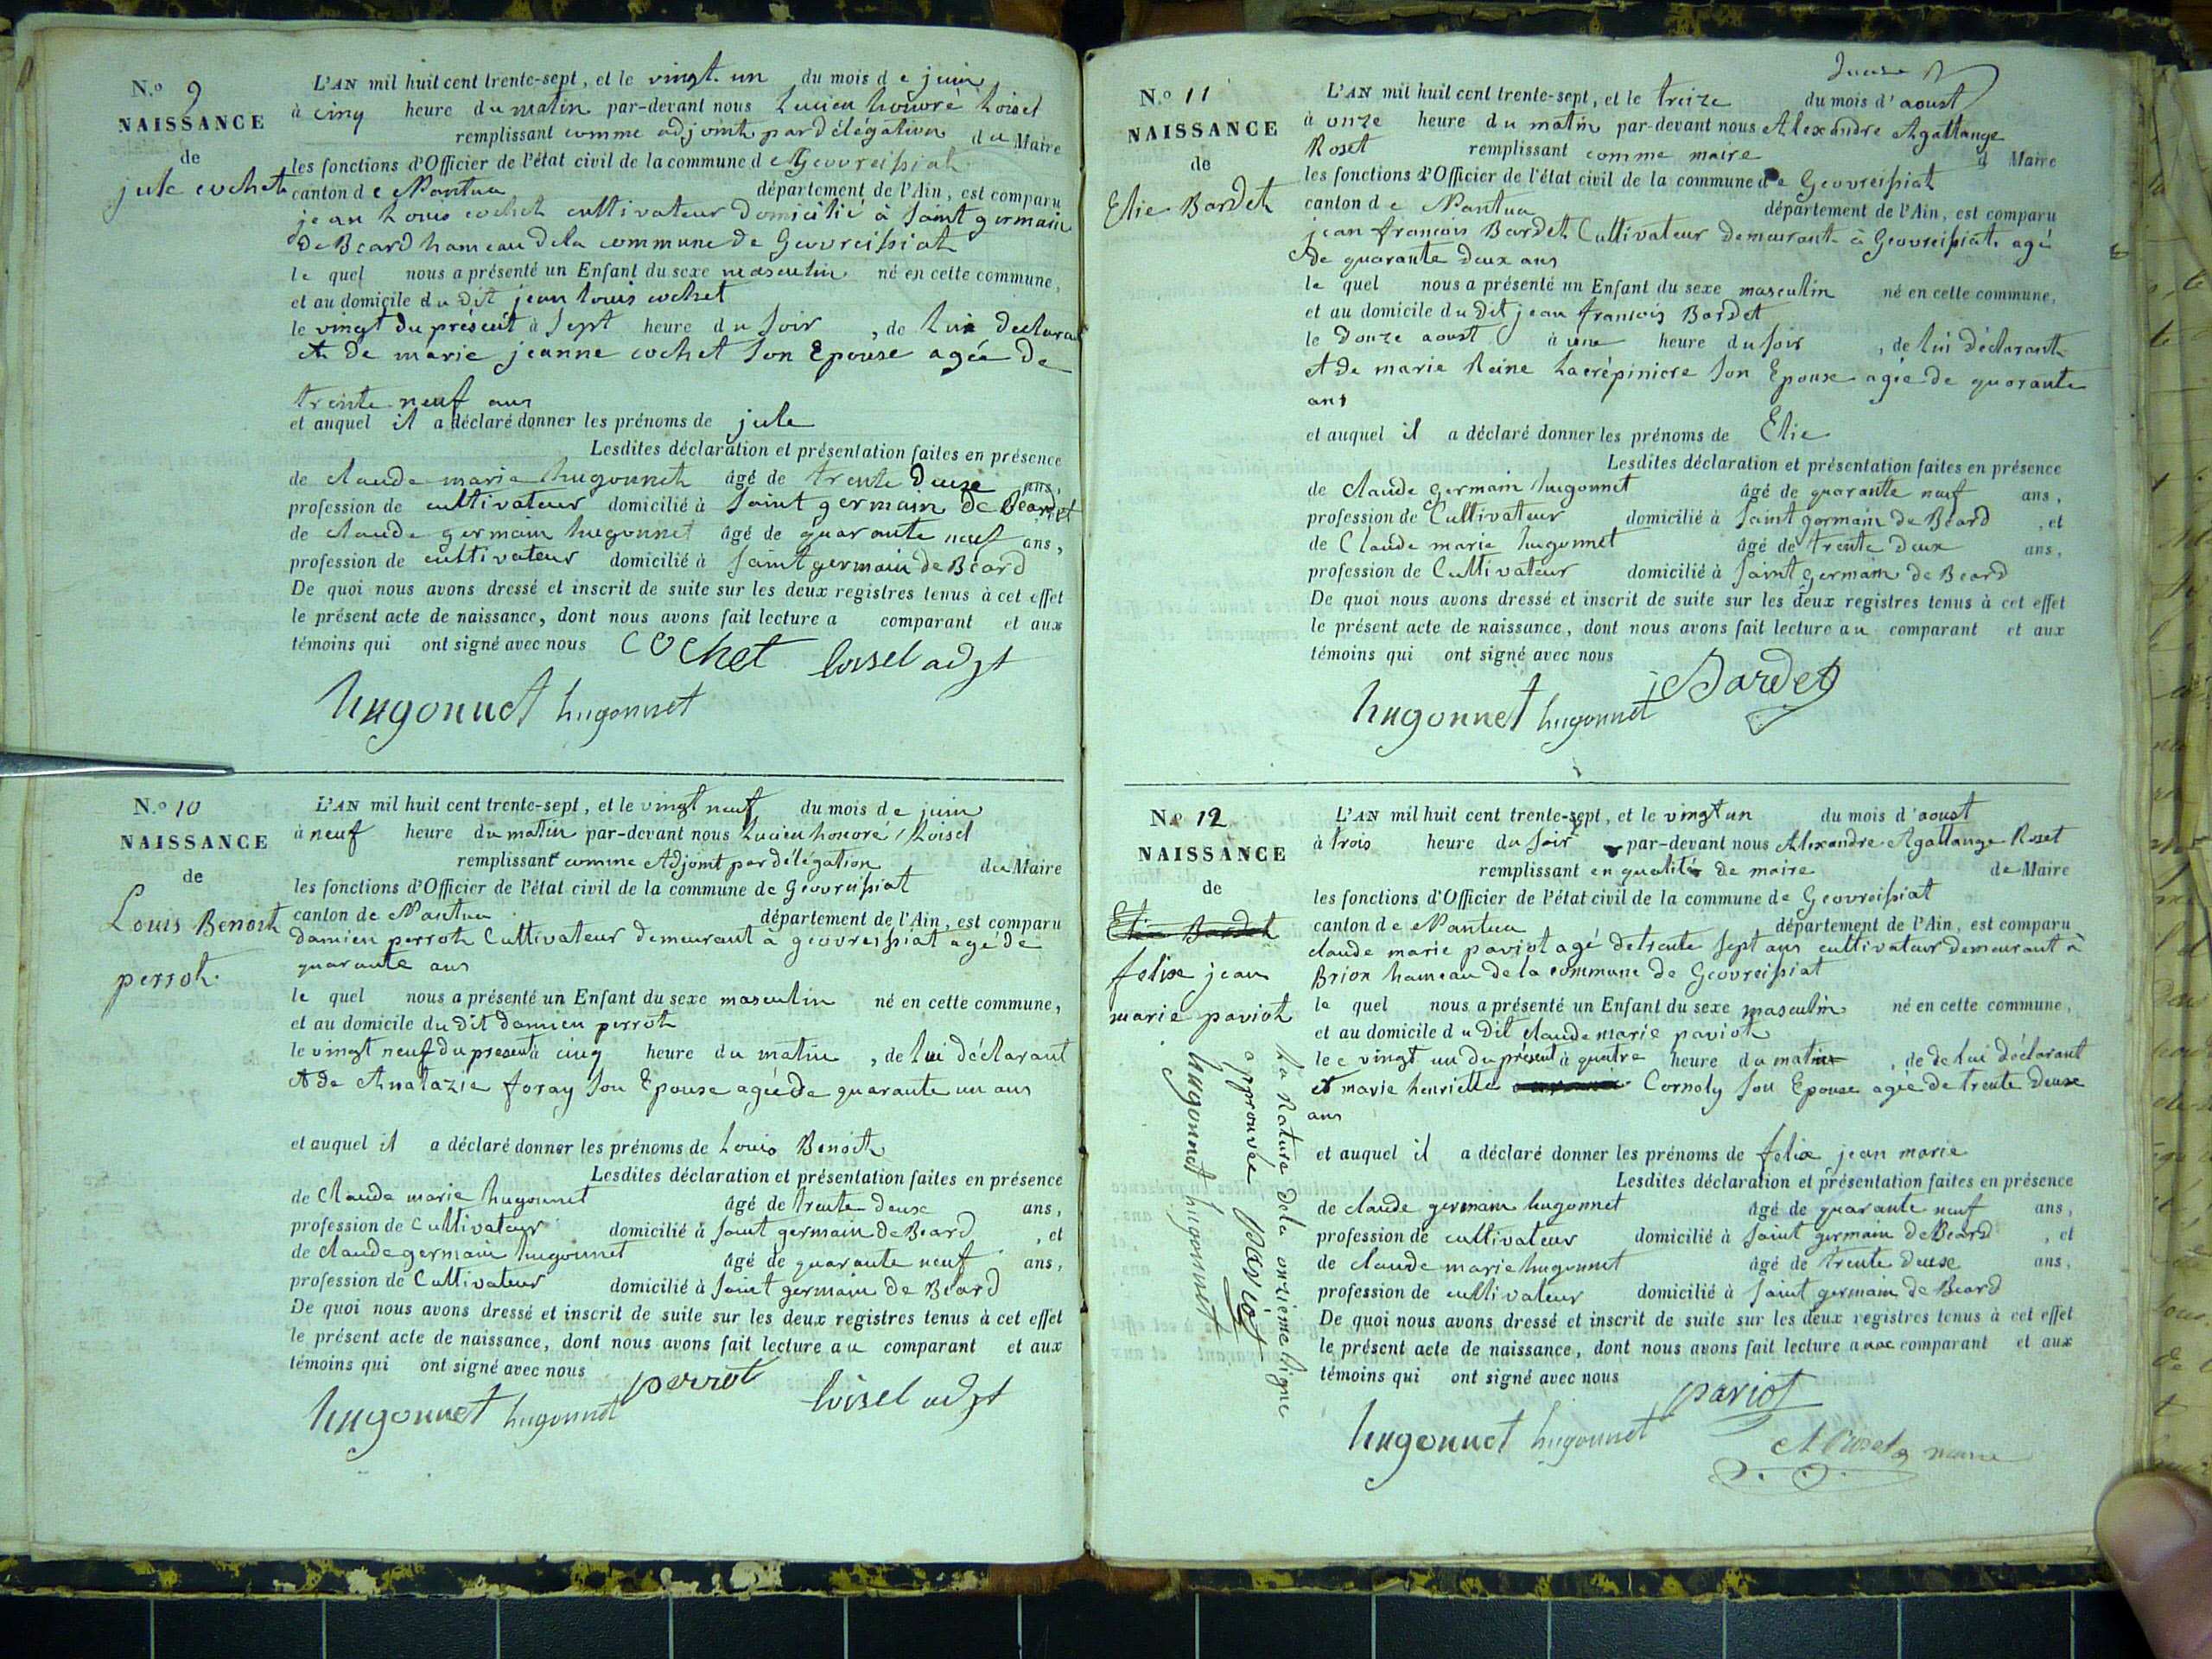 N.º 9
NAISSANCE
de
jule cochet
L'AN mil huit cent trente-sept, et le vingt un du mois de juin
à cinq heure du matin par-devant nous Lucien honoré Loisel
remplissant comme adjoint par délégation du Maire
les fonctions d'Officier de l'état civil de la commune de Geovreissiat
canton de Nantua département de l'Ain, est comparu
jean Louis cochet cultivateur domicilié à saint germain
de Beard hameau de la commune de Geovreissiat
le quel nous a présenté un Enfant du sexe masculin né en cette commune,
et au domicile du dit jean louis cochet
le vingt du présent à sept heure du soir, de lui déclarant
et de marie jeanne cochet son Epouse agée de
trente neuf ans
et auquel il a déclaré donner les prénoms de jule
Lesdites déclaration et présentation faites en présence
de claude marie hugonnet âgé de trente deuxe ans,
profession de cultivateur domicilié à saint germain de Beard, et
de claude germain hugonnet âgé de quarante neuf ans,
profession de cultivateur domicilié à saint germain de Béard
De quoi nous avons dressé et inscrit de suite sur les deux registres tenus à cet effet
le présent acte de naissance, dont nous avons fait lecture a comparant et aux
témoins qui ont signé avec nous cochet loisel adjt
hugonnet hugonnet
N.º 10
NAISSANCE
de
Louis Benoit
perrot
L'AN mil huit cent trente-sept, et le vingt neuf du mois de juin
à neuf heure du matin par-devant nous Lucien honoré Loisel
remplissant comme Adjoint par délégation du Maire
les fonctions d'Officier de l'état civil de la commune de Géovreissiat
canton de Nantua département de l'Ain, est comparu
damien perrot Cultivateur demeurant à géovreissiat agé de
quarante ans
le quel nous a présenté un Enfant du sexe masculin né en cette commune,
et au domicile du dit damien perrot
le vingt neuf du present à cinq heure du matin, de lui déclarant
et de Anatazie foray son Epouse agée de quarante un ans
et auquel il a déclaré donner les prénoms de Louis Benoit
Lesdites déclaration et présentation faites en présence
de Claude marie hugonnet âgé de trente deuxe ans,
profession de Cultivateur domicilié à saint germain de Beard, et
de claude germain hugonnet âgé de quarante neuf ans,
profession de Cultivateur domicilié à saint germain de Béard
De quoi nous avons dressé et inscrit de suite sur les deux registres tenus à cet effet
le présent acte de naissance, dont nous avons fait lecture au comparant et aux
témoins qui ont signé avec nous perrot
hugonnet hugonnet loisel adjt
N.º 11
NAISSANCE
de
Elie Bardet
L'AN mil huit cent trente-sept, et le treize du mois d'aoust
à onze heure du matin par-devant nous Alexandre Agattange
Roset remplissant comme maire d Maire
les fonctions d'Officier de l'état civil de la commune de Geovreissiat
canton de Nantua département de l'Ain, est comparu
jean francois Bardet Cultivateur demeurant à Geovreissiat agé
de quarante deux ans
le quel nous a présenté un Enfant du sexe masculin né en cette commune,
et au domicile du dit jean francois Bardet
le douze aoust à une heure du soir, de lui déclarant
et de marie Reine Lacrépiniere son Epouse agée de quarante
ans
et auquel il a déclaré donner les prénoms de Elie
Lesdites déclaration et présentation faites en présence
de claude germain hugonnet âgé de quarante neuf ans,
profession de Cultivateur domicilié à saint germain de Béard, et
de Claude marie hugonnet âgé de trente deux ans,
profession de Cultivateur domicilié à saint germain de Beard
De quoi nous avons dressé et inscrit de suite sur les deux registres tenus à cet effet
le présent acte de naissance, dont nous avons fait lecture au comparant et aux
témoins qui ont signé avec nous
hugonnet hugonnet jBardet
N.º 12
NAISSANCE
de
Elie Bardet
felix jean
marie paviot
La Rature dela onzieme ligne
approuvée paviot
hugonnet hugonnet
L'AN mil huit cent trente-sept, et le vingt un du mois d'aoust
à trois heure du soir par-devant nous Alexandre Agattange Roset
remplissant en qualité de maire de Maire
les fonctions d'Officier de l'état civil de la commune de Geovreissiat
canton de Nantua département de l'Ain, est comparu
claude marie paviot agé de trente sept ans cultivateur demeurant à
Brion hameau de la commune de Geovreissiat
le quel nous a présenté un Enfant du sexe masculin né en cette commune,
et au domicile du Dit claude marie paviot
le vingt un du présent à quatre heure du matin, de de lui déclarant
et marie henriette Cornoly son Epouse agée de trente deuxe
ans
et auquel il a déclaré donner les prénoms de felix jean marie
Lesdites déclaration et présentation faites en présence
de claude germain hugonnet âgé de quarante neuf ans,
profession de cultivateur domicilié à saint germain de Beard, et
de claude marie hugonnet âgé de trente deuxe ans,
profession de cultivateur domicilié à saint germain de Beard
De quoi nous avons dressé et inscrit de suite sur les deux registres tenus à cet effet
le présent acte de naissance, dont nous avons fait lecture aux comparant et aux
témoins qui ont signé avec nous paviot
hugonnet hugonnet A Roset maire